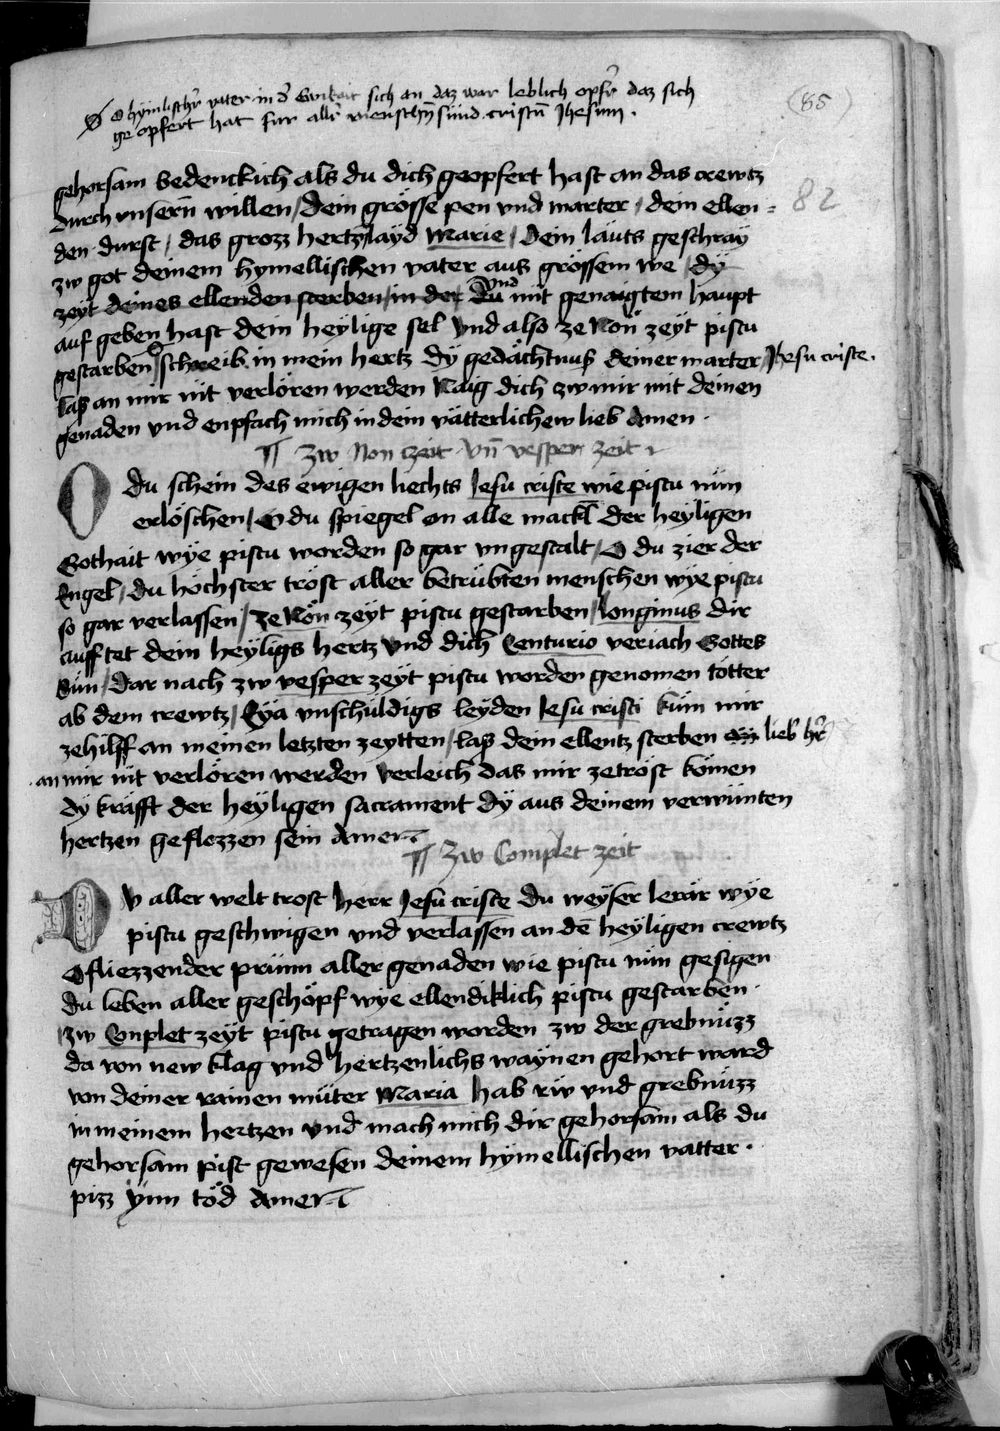 O hymlischer vater in d' Ewikait sich an daz war loblich opfer daz sich
ge opfert hat fur aller menschen sünd cristū Jhesum .
(85)
82
gehorsam bedenckich als du dich geopfert hast an das crewtz
durch vnsern̄ willen / dein grösse pen vnd marter / dein ellen =
den durst / das grozz hertzlayd Marie / Dein lauts geschray
zw got deinem hymellischen vater aus grossem we / dÿ
zeyt deines ellenden sterben / in der du vnd mit genaigtem haupt
auf geben hast dein heylige sel vnd also ze Non zeyt pistu
gestarben / O schreib in mein hertz dÿ gedächtnuß deiner marter / Jhesu criste .
laß an mir nit verloren werden Naig dich zw mir mit deinen
genaden vnd enpfach mich in dein vätterlichew lieb Amen .
¶ Zw Non czeit vn̄ vesper zeit
O du schein des ewigen liechts Jesu criste wie pistu nün
erlöschen / O du spiegel on alle mackl der heyligen
Gothait wÿe pistu worden so gar vngestalt / O du zier der
Engel / du höchster tröst aller betrübten menschen wÿe pistu
so gar verlassen / ze Nön zeyt pistu gestarben / longinus dir
aufftet dein heyligs hertz vnd dich Centurio veriach Gottes
Sün / dar nach zw vesper zeyt pistu worden genomen totter
ab dem crewtz / Eya vnschuldigs leyden Jesu cristi küm mir
zehilff an meinen letzten zeytten / laß dein ellentz sterben lieb h'r
an mir nit verloren werden verleich das mir zetröst kömen
dÿ kräfft der heyligen sacrament dÿ aus deinem verwunten
hertzen geflozzen sein Amen
¶ Zw Complet zeit
DV aller welt trost herr Jesu criste du weyser lerär wÿe
pistu geschwigen vnd verlassen an dē heyligen crewtz
O fliezzender prünn aller genaden wie pistu nün gesigen
du leben aller geschöpf wÿe ellendiklich pistu gestarben .
zw Conplet zeyt pistu getragen worden zw der grebnüzz
da von new klag vnd hertzenlichs waÿnen gehort ward
von deiner rainen müter Maria hab rüw vnd grebnüzz
in meinem hertzen vnd mach mich dir gehorsam als du
gehorsam pist gewesen deinem hymellischen vatter .
pizz ÿnn töd Amen